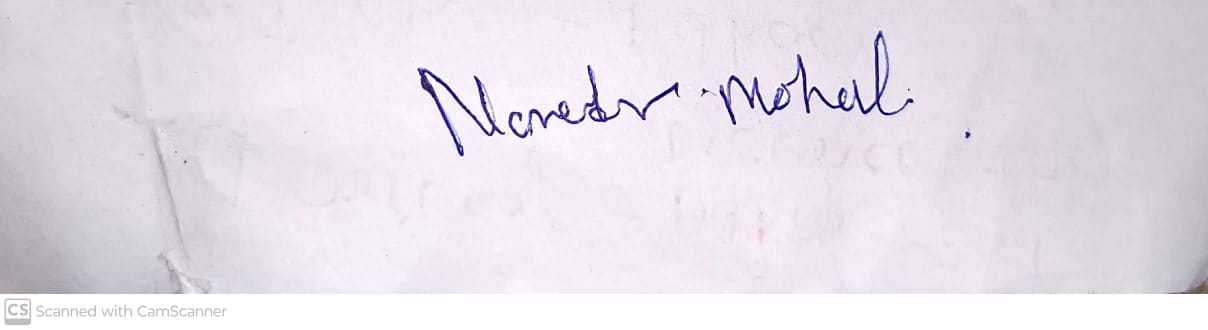 Naredr mohal.
CS Scanned with CamScanner